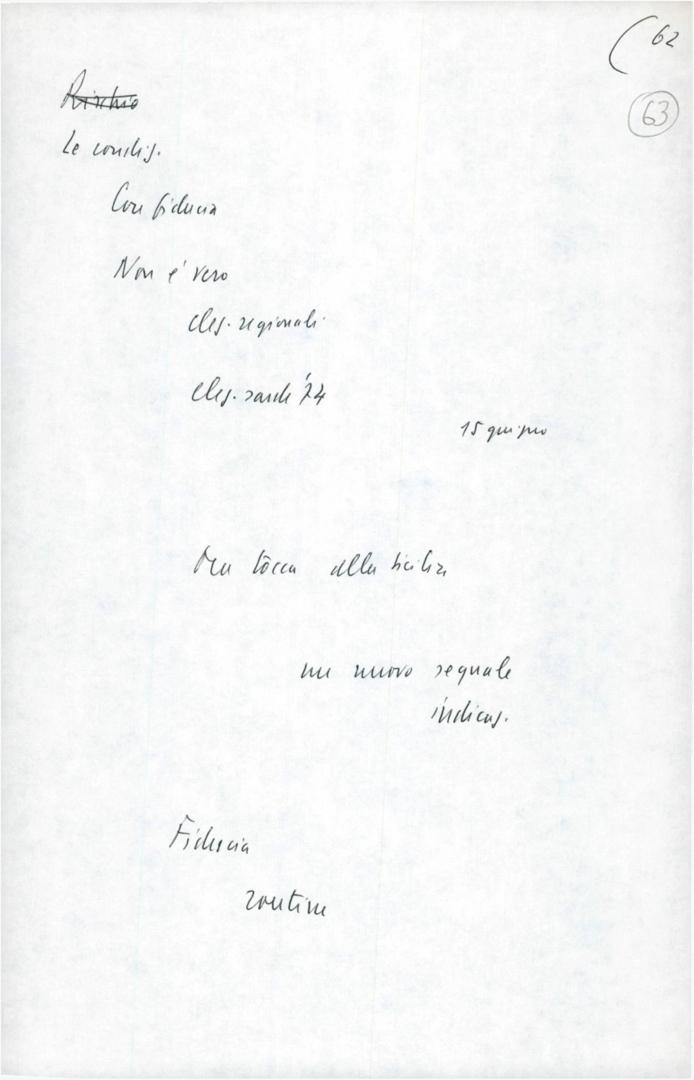 62
63
Rischio
Le condiz.
Con fiducia
Non e' vero
elez. regionali
elez. sarde '74
15 giugno
Ora tocca alla Sicilia
un nuovo segnale
indicaz.
Fiducia